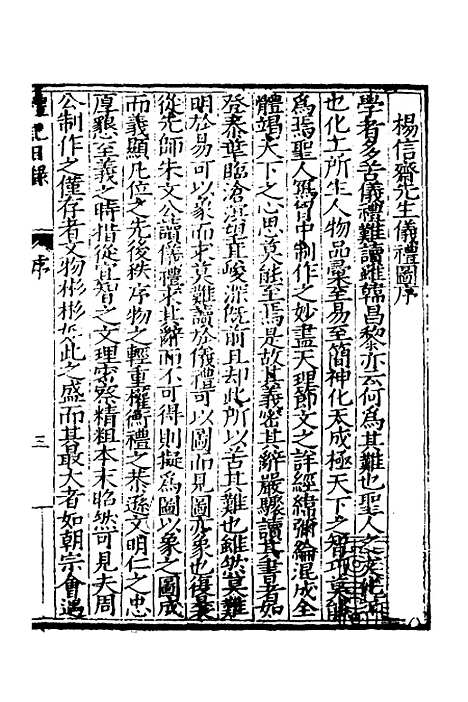 楊信齋先生儀禮圖序
學者多苦儀禮難讀雖韓昌黎亦云何為其難也聖人之文化工
也化工所生人物品彙至易至簡神化天成極天下之智巧莫能
為焉聖人寫胷中制作之妙盡天理節文之詳經緯彌綸混成全
體竭天下之心思莫能至焉是故其義密其辭嚴驟讀其書者如
登泰華臨滄溟望其峻深既前且却此所以苦其難也雖然莫難
明於易可以象而求莫難讀於儀禮可以圖而見圖亦象也復
從先師朱文公讀儀禮求其辭而不可得則擬為圖以象之圖成
而義顯凡位之先後秩序物之輕重權衡禮之恭遜文明仁之忠
厚懇至義之時措從宜智之文理密察精粗本末昭然可見夫周
公制作之僅存者文物彬彬如此之盛而其最大者如朝宗會遇
禮記目錄
序
三